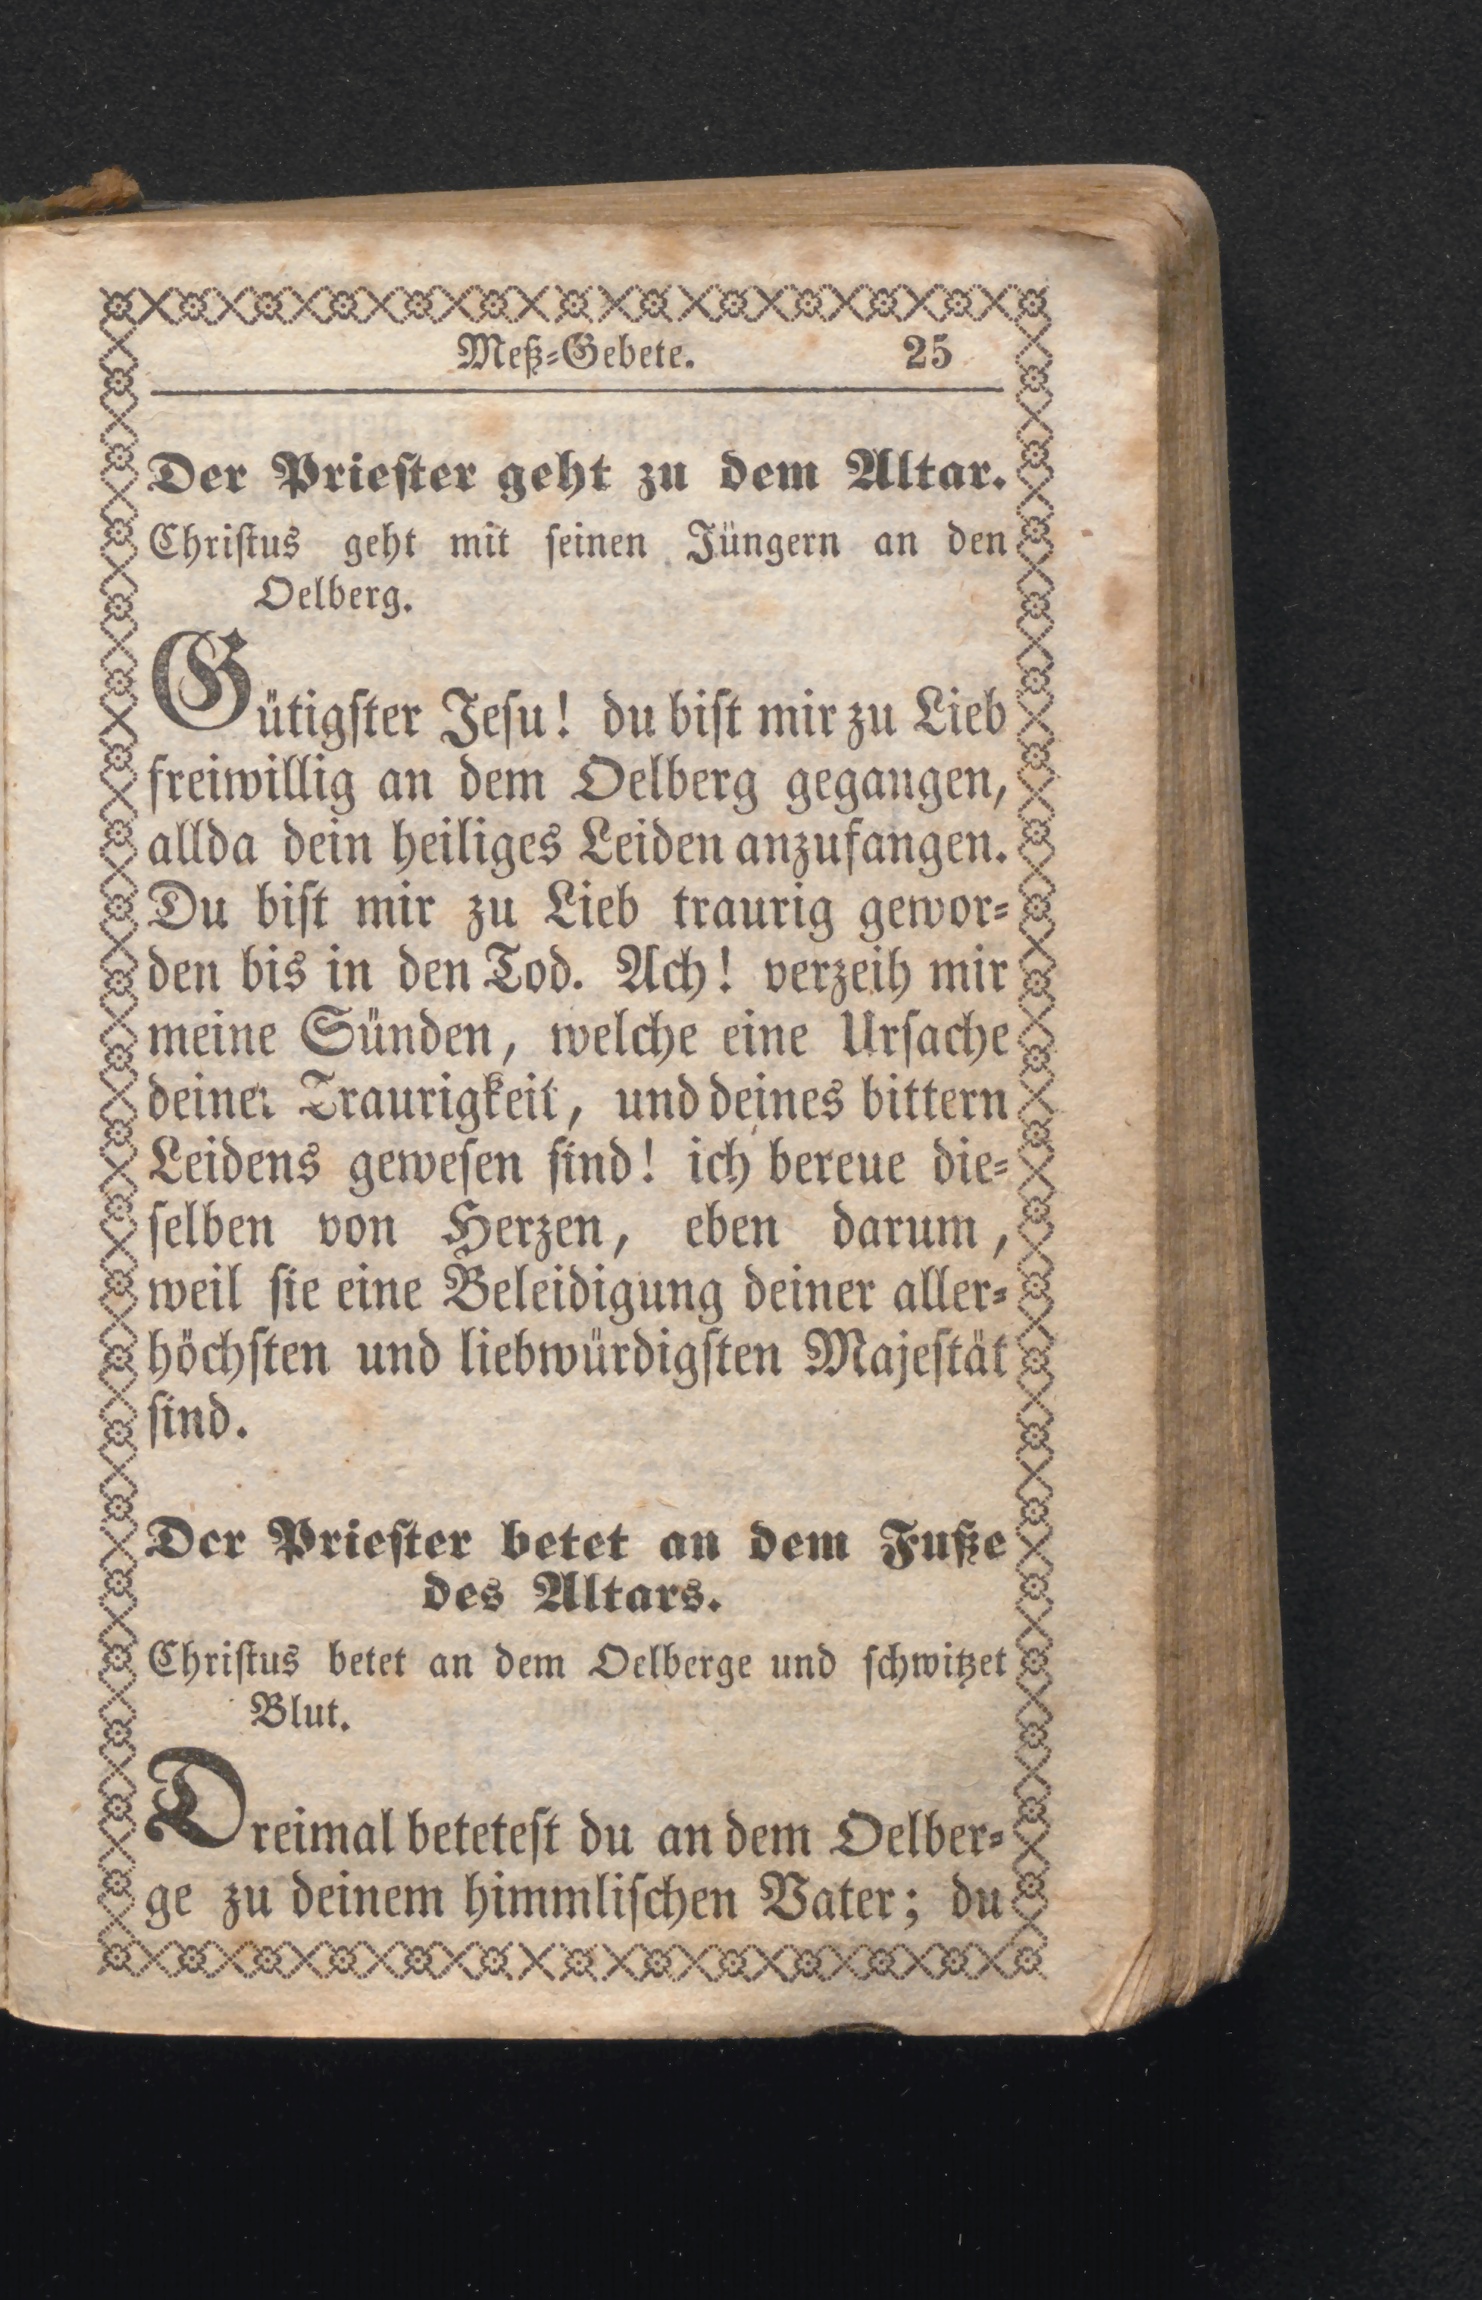 Meß-Gebete. 25
Der Priester geht zu dem Altar.
Christus geht mit seinen Jüngern an den
Oelberg.
Gütigster Jesu! du bist mir zu Lieb
freiwillig an dem Oelberg gegangen,
allda dein heiliges Leiden anzufangen.
Du bist mir zu Lieb traurig gewor-
den bis in den Tod. Ach! verzeih mir
meine Sünden, welche eine Ursache
deiner Traurigkeit, und deines bittern
Leidens gewesen sind! ich bereue die-
selben von Herzen, eben darum,
weil sie eine Beleidigung deiner aller-
höchsten und liebwürdigsten Majestät
sind.
Der Priester betet an dem Fuße
des Altars.
Christus betet an dem Oelberge und schwitzet
Blut.
Dreimal betetest du an dem Oelber-
ge zu deinem himmlischen Vater; du